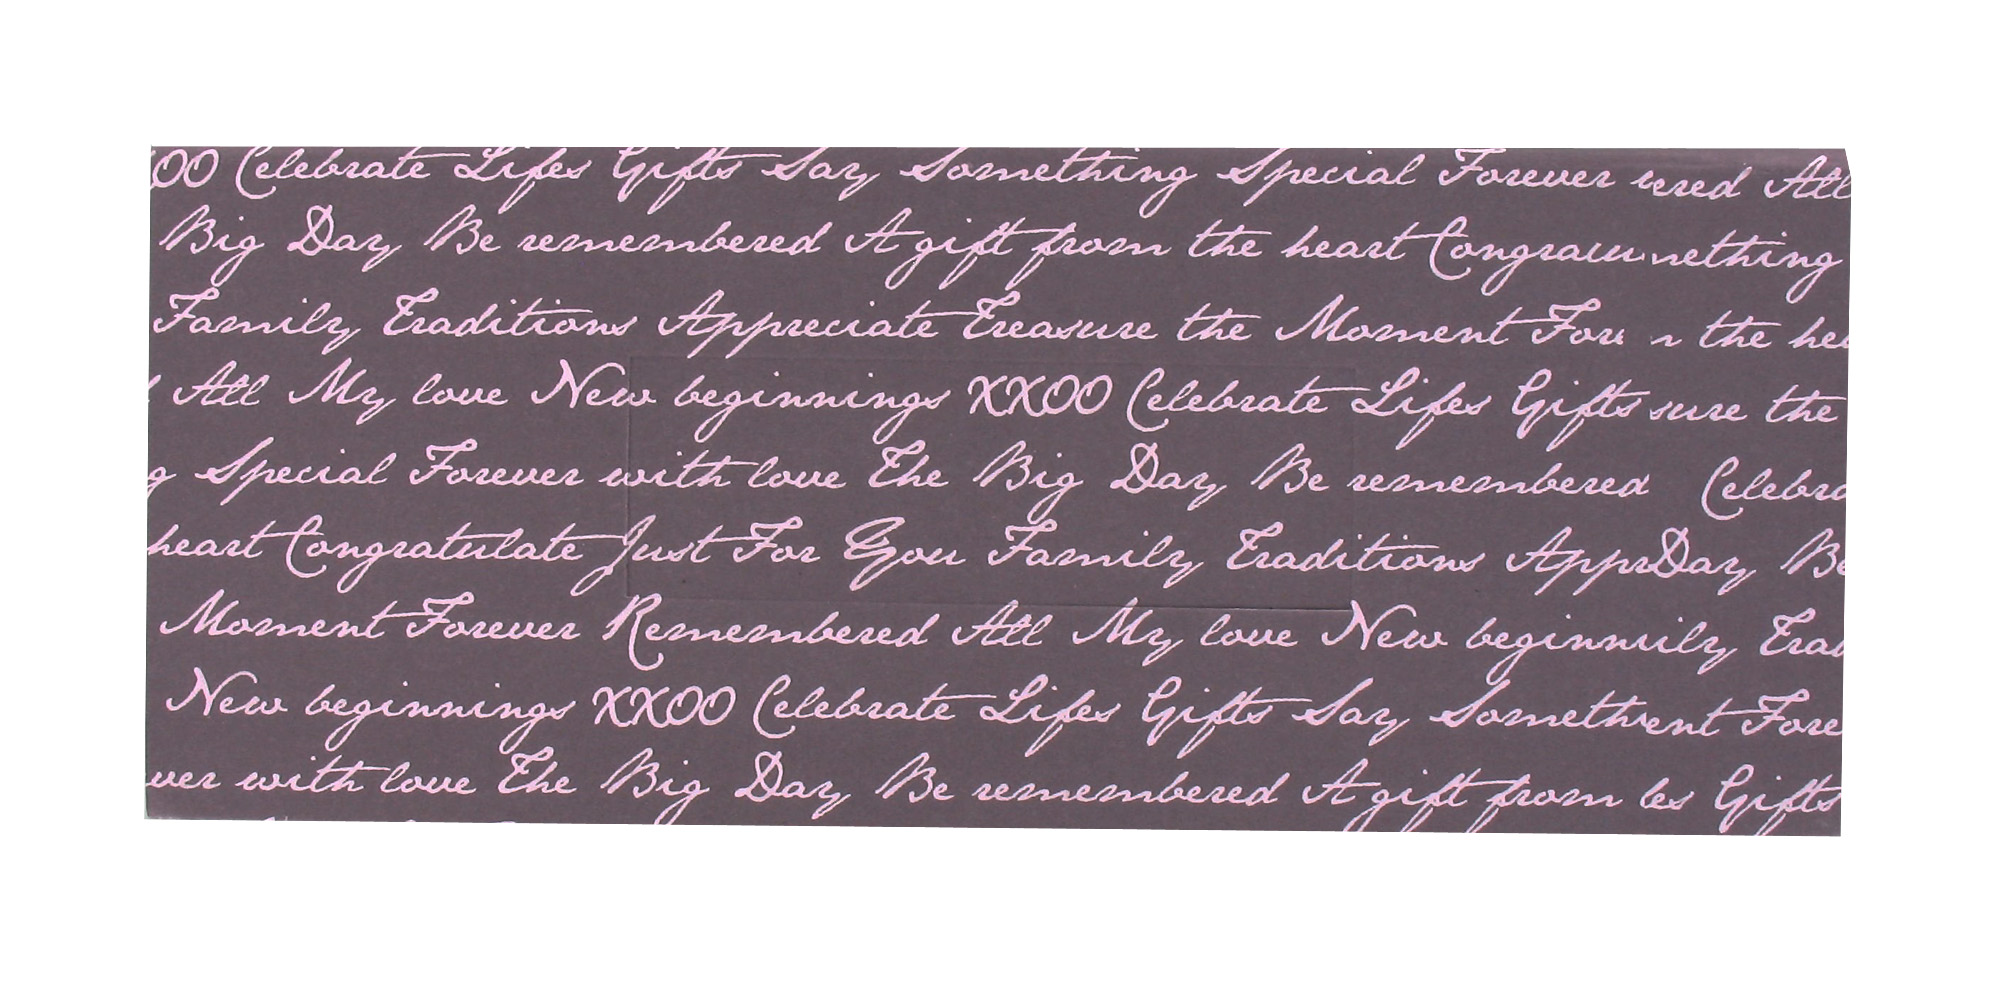 OO Celebrate Lifes Gifts Say Something Special Forever ered All
Big Day Be remembered A gift from the heart Congratu nething
Family Traditions Appreciate Treasure the Moment For the hea
All My love New beginnings XXOO Celebrate Lifes Gifts sure the
g Special Forever with love The Big Day Be remembered Celebra
heart Congratulate Just For You Family Traditions Appr Day Be
Moment Forever Remembered All My love New beginn ily Trad
New beginnings XXOO Celebrate Lifes Gifts Say Someth ent Fore
ver with love The Big Day Be remembered A gift from es Gifts